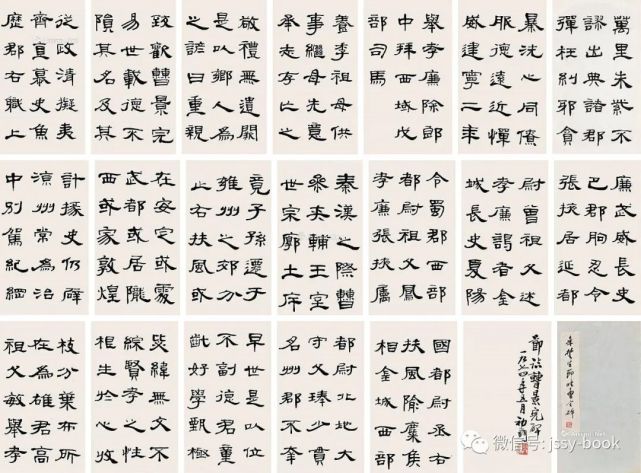 萬里朱紫不
謬出典諸郡
彈枉糾邪貪
暴洗心同僚
服德遠近憚
威建寧二年
舉孝廉除郎
中拜西域戊
部司馬
養季祖母供
事繼母先意
承志存亡之
敬禮無遺闕
是以鄉人為
之諺曰重親
致歡曹景完
易世載德不
隕其名及其
從政清擬夷
齊直慕史魚
歷郡右職上
廉武威長史
巴郡朐忍令
張掖居延都
尉曾祖父述
孝廉謁者金
城長史夏陽
令蜀郡西部
都尉祖父鳳
孝廉張掖屬
秦漢之際曹
參夾輔王室
世宗廓土斥
竟子孫遷于
雍州之郊分
止右扶風或
在安定或處
武都或居隴
西或家敦煌
計掾史仍辟
涼州常為治
中別駕紀綱
節臨曹景完碑
一九七四年五月
國都尉丞右
扶風隃麋侯
相金城西部
都尉北地大
守父琫少貫
名州郡不幸
早世是以位
不副德君童
齓好學甄極
毖緯無文不
綜賢孝之性
根生於心收
枝分葉布所
在為雄君高
祖父敏舉孝
微信号: jssy-book